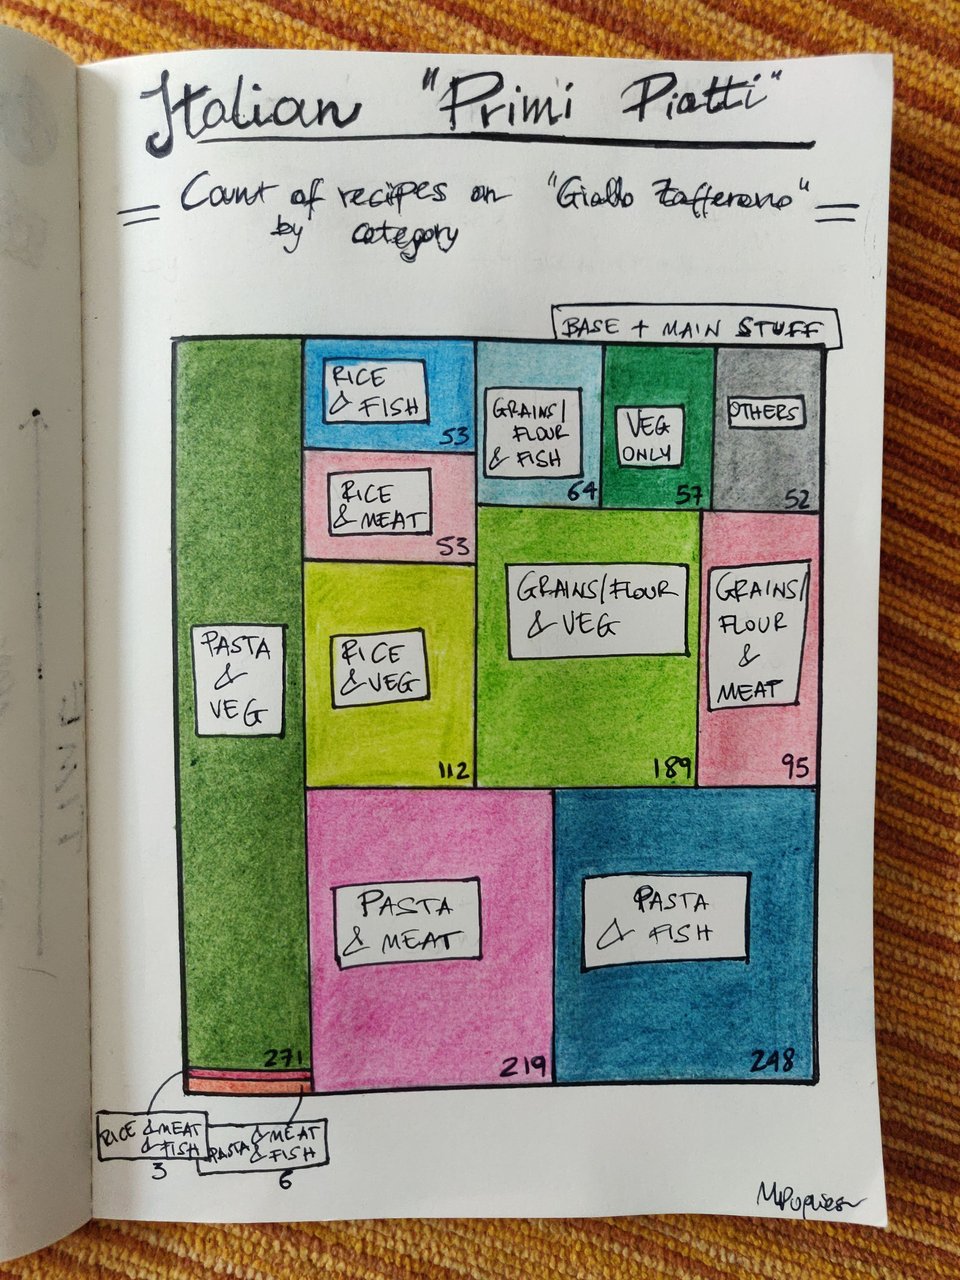 Italian "Primi Piatti"
Count of recipes on "Giallo Zafferano"
by category
BASE + MAIN STUFF
RICE
& FISH
53
GRAINS/
FLOUR
& FISH
64
VEG
ONLY
57
OTHERS
52
RICE
& MEAT
53
PASTA
&
VEG
271
RICE
& VEG
112
GRAINS/FLOUR
& VEG
189
GRAINS/
FLOUR
&
MEAT
95
PASTA
& MEAT
219
PASTA
& FISH
248
RICE & MEAT
& FISH
3
PASTA & MEAT
& FISH
6